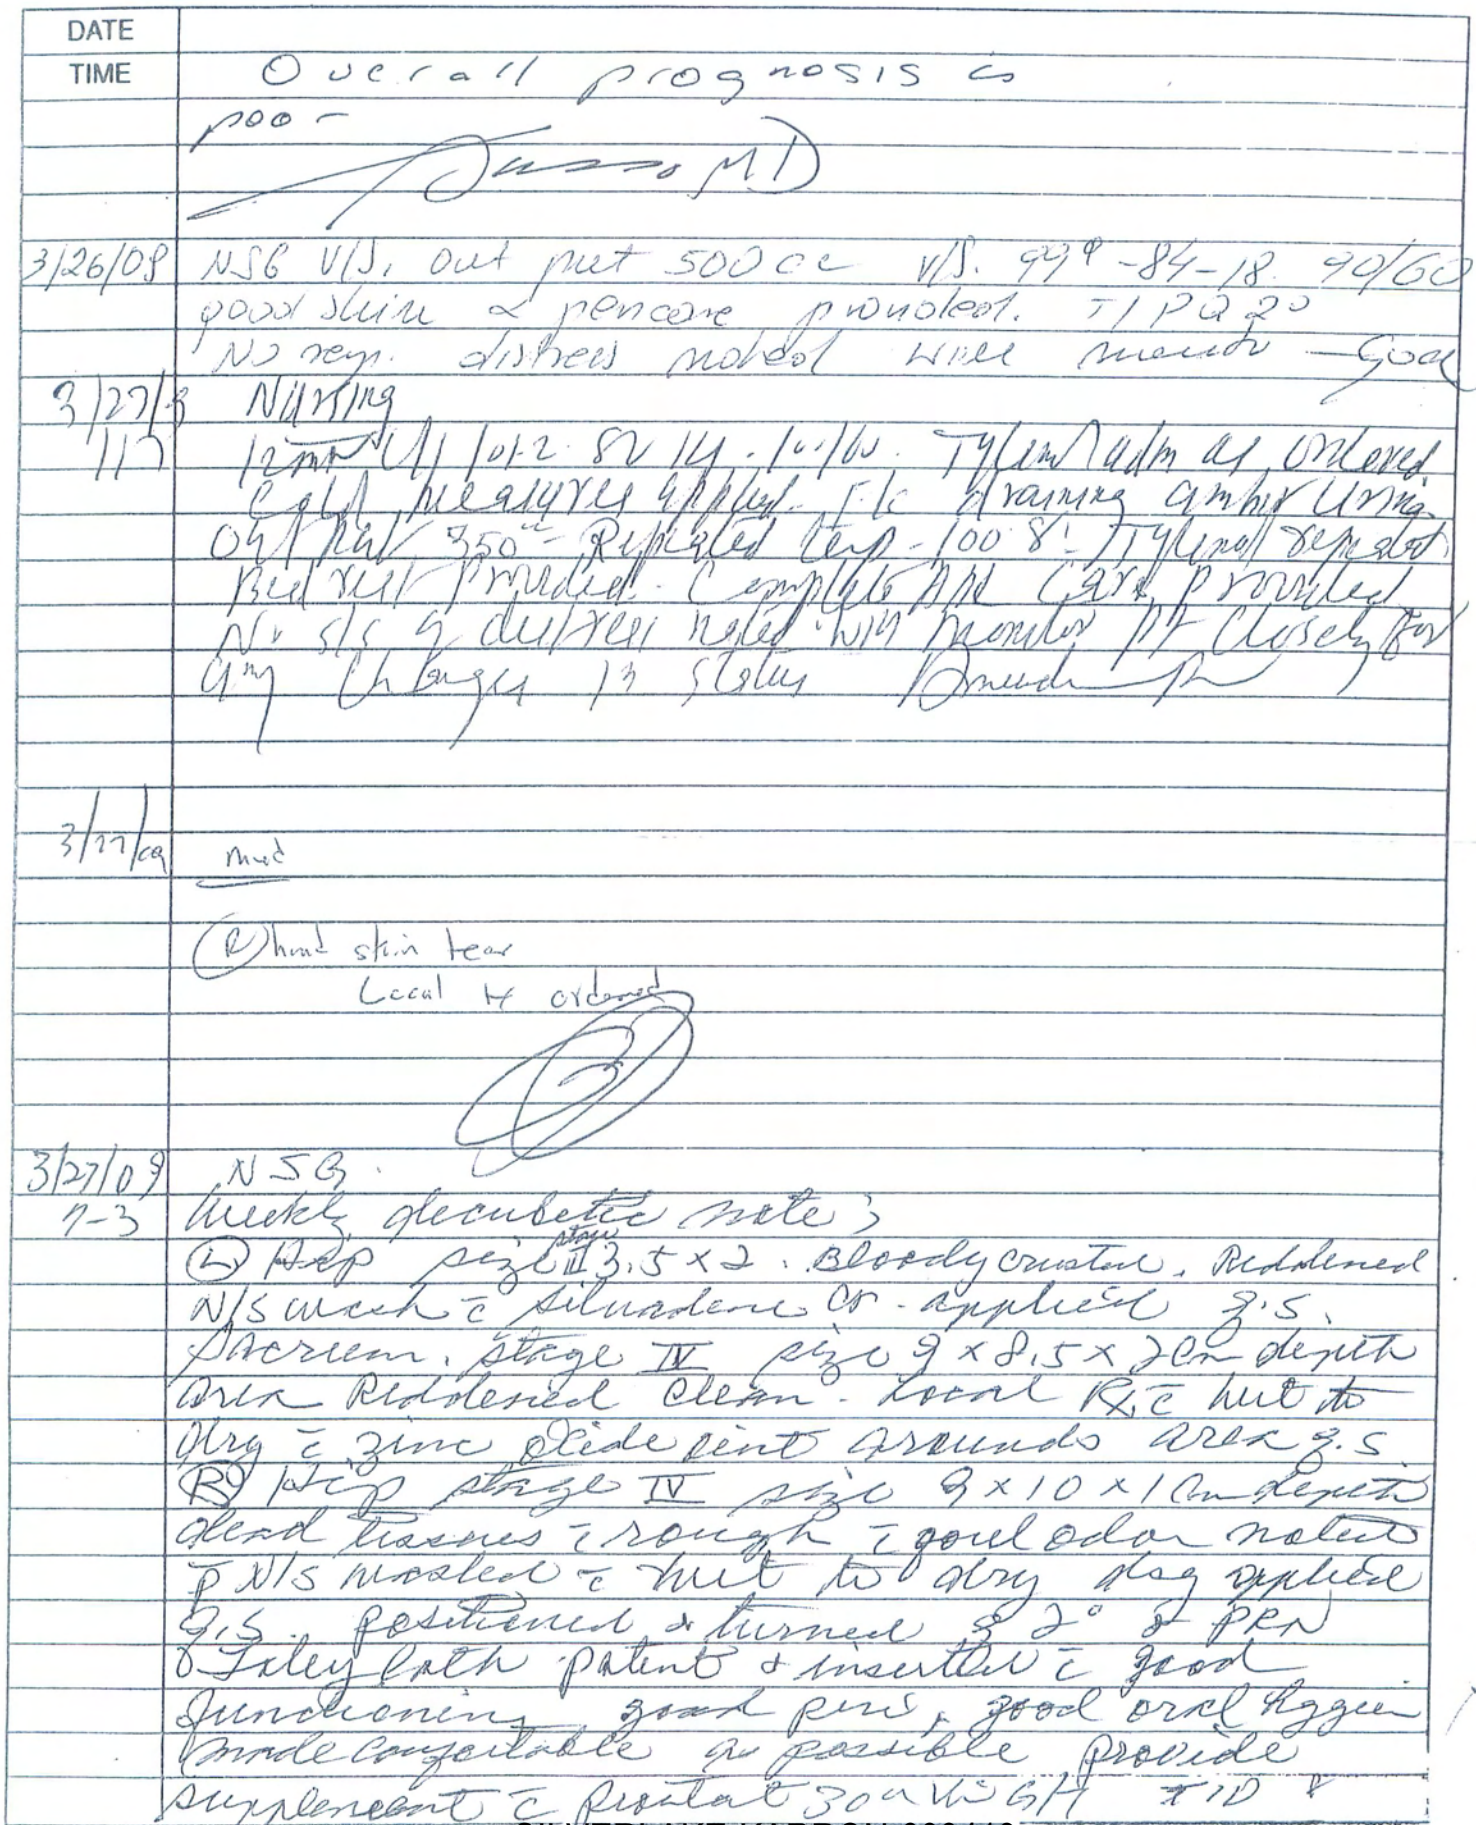 DATE
TIME Overall prognosis is
poor
MD
3/26/09 NSG V/S, out put 500 cc V/S. 99⁹-84-18 90/60
good skin & pericare provided. T/P Q 2°
No resp. distress noted will monitor
3/27/9 Nursing
11-7 12mn V/S 101.2 82 14. 100/60. Tylenol adm as ordered
Cold measures applied. F/c draining amber urine.
Output 350cc Repeated temp - 100.8 Tylenol repeated
Bed rest provided. Complete ADL Care provided
No s/s of distress noted will monitor pt closely for
any changes in status
3/27/09 med
(R) hand skin tear
Local tx ordered
3/27/09 NSG.
7-3 Weekly decubitic note;
(L) Hip size stage II 3.5 x 2. Bloody crusted. Reddened
N/S wash c̄ silvadene cr. applied q.s.
Sacrum. stage IV size 9 x 8.5 x 2cm depth
area Reddened clean. Local Rx c̄ wet to
dry c̄ zinc oxide oint arounds area q.s
(R) Hip stage IV size 9 x 10 x 1cm depth
dead tissues c̄ rough c̄ foul odor noted
p̄ N/S washed c̄ wet to dry dsg applied
q.s. positioned & turned q 2° & PRN
Foley cath patent & inserted c̄ good
functioning good peri, good oral hygien
made comfortable as possible provide
supplement c̄ Prostat 30cc via GT TID &